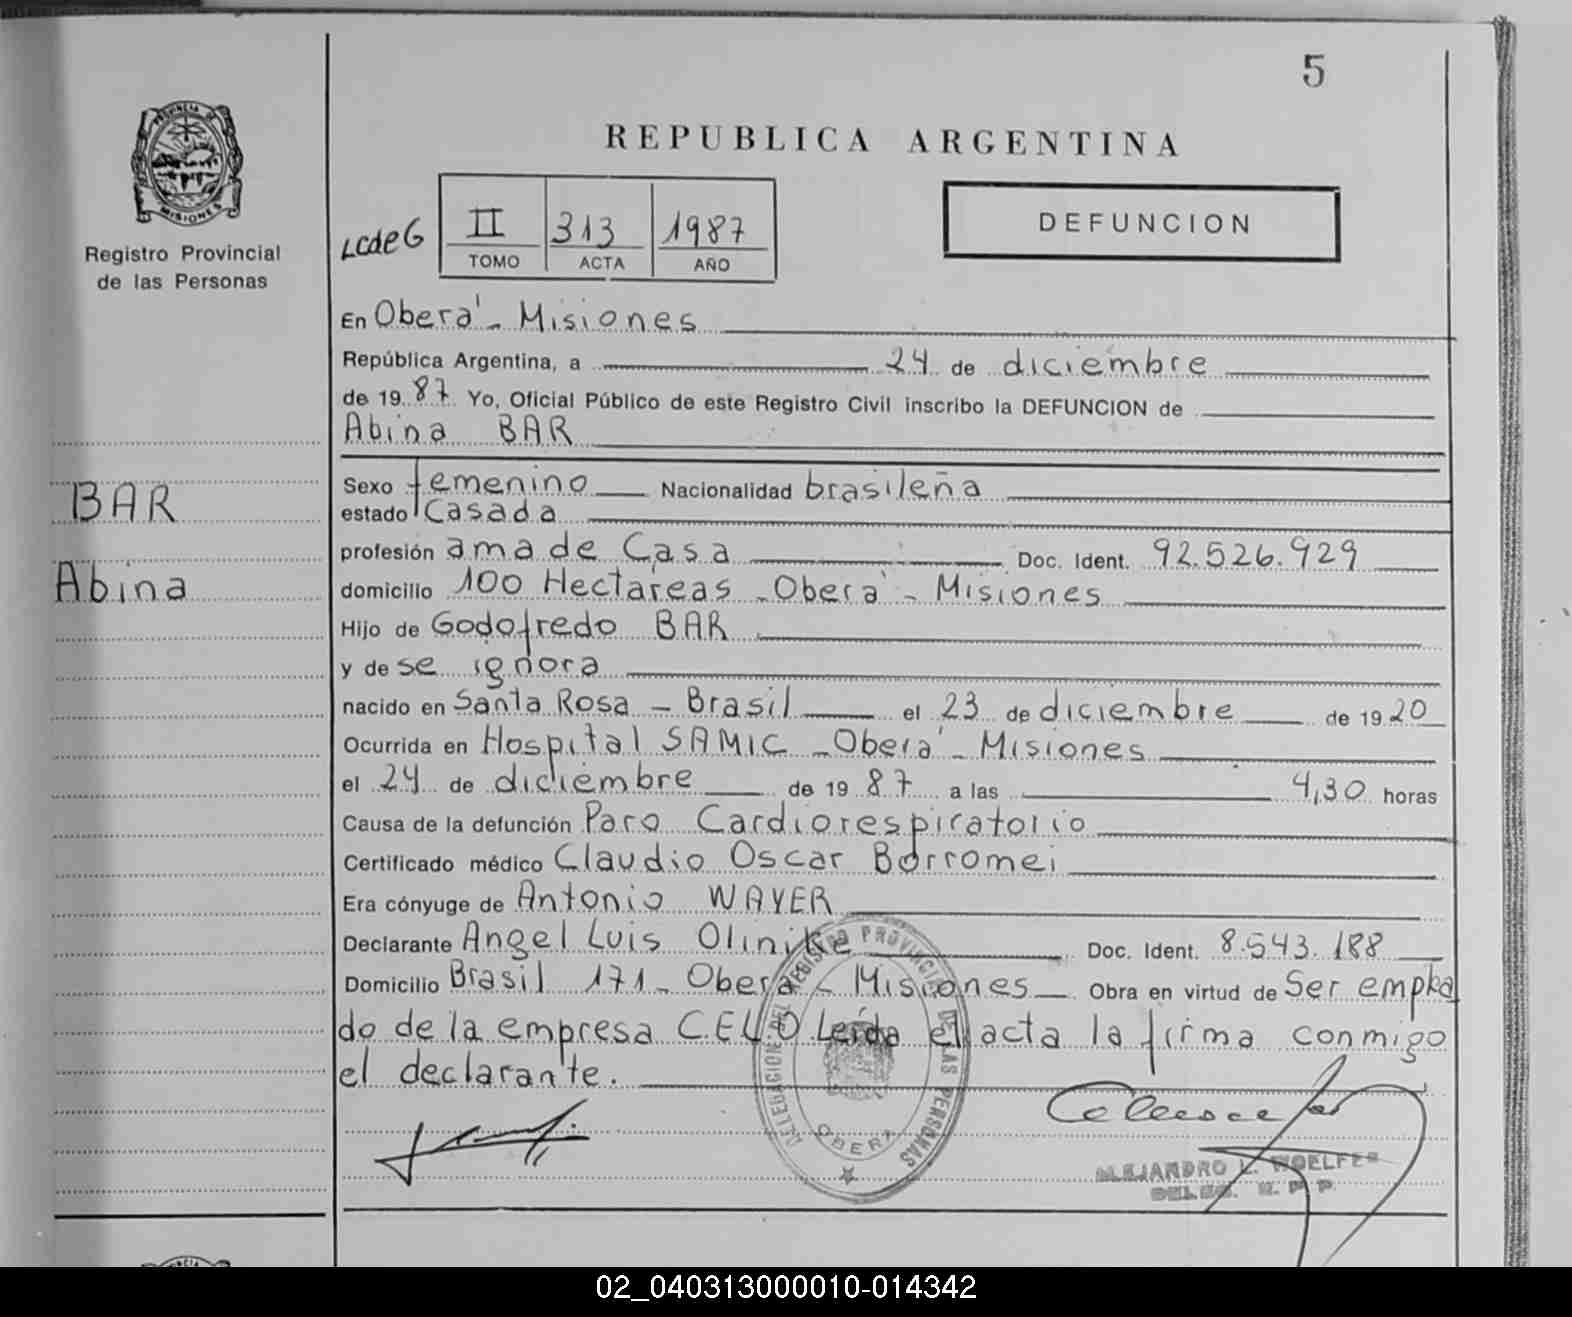 5
PROVINCIA D
MISIONES
Registro Provincial
de las Personas
REPUBLICA ARGENTINA
LcdeG
II 313 1987
TOMO ACTA AÑO
DEFUNCION
En Oberá - Misiones
República Argentina, a 24 de diciembre
de 1987 Yo, Oficial Público de este Registro Civil inscribo la DEFUNCION de
Abina BAR
BAR
Abina
Sexo femenino Nacionalidad brasileña
estado Casada
profesión ama de Casa Doc. Ident. 92.526.929
domicilio 100 Hectáreas - Oberá - Misiones
Hijo de Godofredo BAR
y de se ignora
nacido en Santa Rosa - Brasil el 23 de diciembre de 1920
Ocurrida en Hospital SAMIC - Oberá - Misiones
el 24 de diciembre de 1987 a las 4,30 horas
Causa de la defunción Paro Cardiorespiratorio
Certificado médico Claudio Oscar Borromei
Era cónyuge de Antonio WAYER
Declarante Angel Luis Olinike Doc. Ident. 8.543.188
Domicilio Brasil 171 - Oberá - Misiones Obra en virtud de Ser emplea
do de la empresa C.E.L.O Leída el acta la firma conmigo
el declarante.
DELEGACION DEL REGISTRO PROVINCIAL DE LAS PERSONAS
OBERA
ALEJANDRO L. WOELFER
DELEG. R. P. P.
02_040313000010-014342